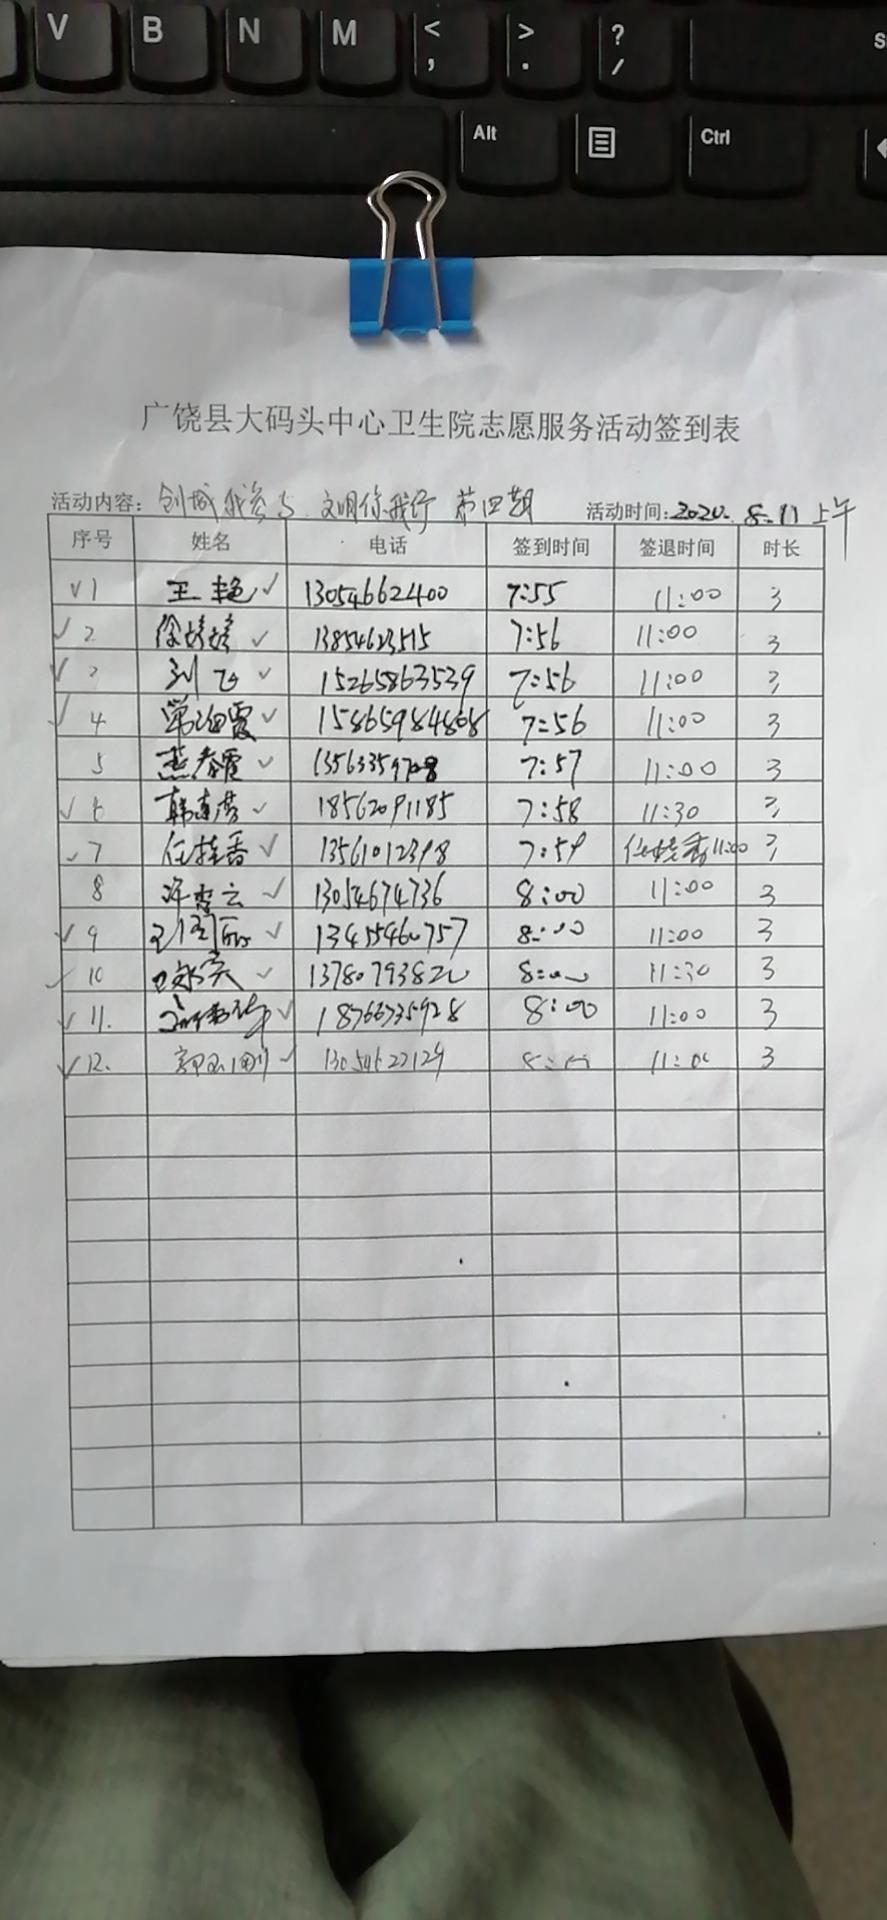 V B N M < , > . ? /
Alt Ctrl
广饶县大码头中心卫生院志愿服务活动签到表
活动内容: 创城我参与 文明你我行 第四期 活动时间: 2020. 8.11 上午
序号 姓名 电话 签到时间 签退时间 时长
√1 王艳√ 13054662400 7:55 11:00 3
√2 徐婷婷√ 13854623515 7:56 11:00 3
√3 刘飞√ 15265863539 7:56 11:00 3
√4 霞√ 15865984808 7:56 11:00 3
5 燕春霞√ 7:57 11:00 3
√6 韩√ 18562091185 7:58 11:30 3
√7 任桂香√ 13561012398 7:59 任桂香11:00 3
8 许云√ 13054674736 8:00 11:00 3
√9 √ 13455460757 8:00 11:00 3
√10 √ 13780793820 8:00 11:30 3
√11. √ 18766735928 8:00 11:00 3
√12. 郭刚√ 13054622129 8:00 11:00 3